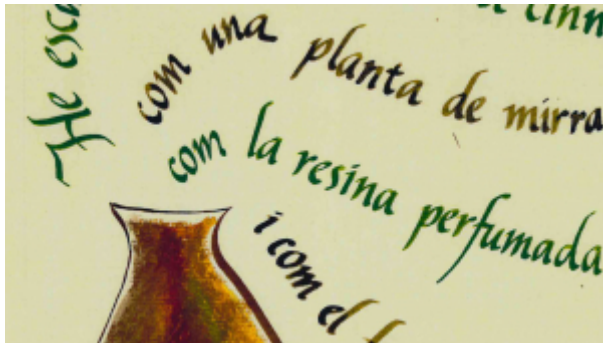 He esca
cinn
com una planta de mirra
com la resina perfumada
i com el